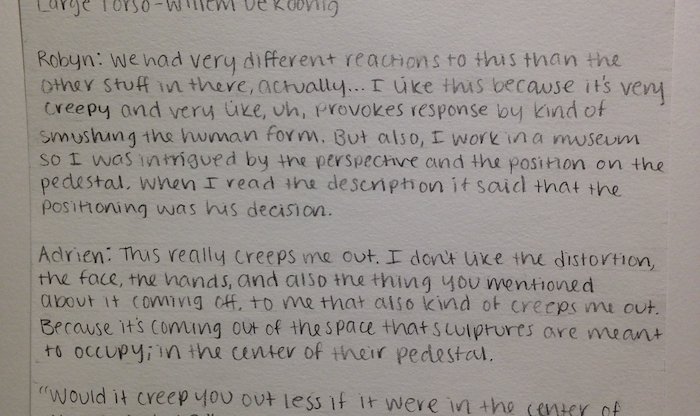 Large Torso - Willem De Koonig
Robyn: We had very different reactions to this than the
other stuff in there, actually... I like this because it's very
creepy and very like, uh, provokes response by kind of
smushing the human form. But also, I work in a museum
so I was intrigued by the perspective and the position on the
pedestal. When I read the description it said that the
positioning was his decision.
Adrien: This really creeps me out. I don't like the distortion,
the face, the hands, and also the thing you mentioned
about it coming off, to me that also kind of creeps me out.
Because it's coming out of the space that sculptures are meant
to occupy; in the center of their pedestal.
"Would it creep you out less if it were in the center of